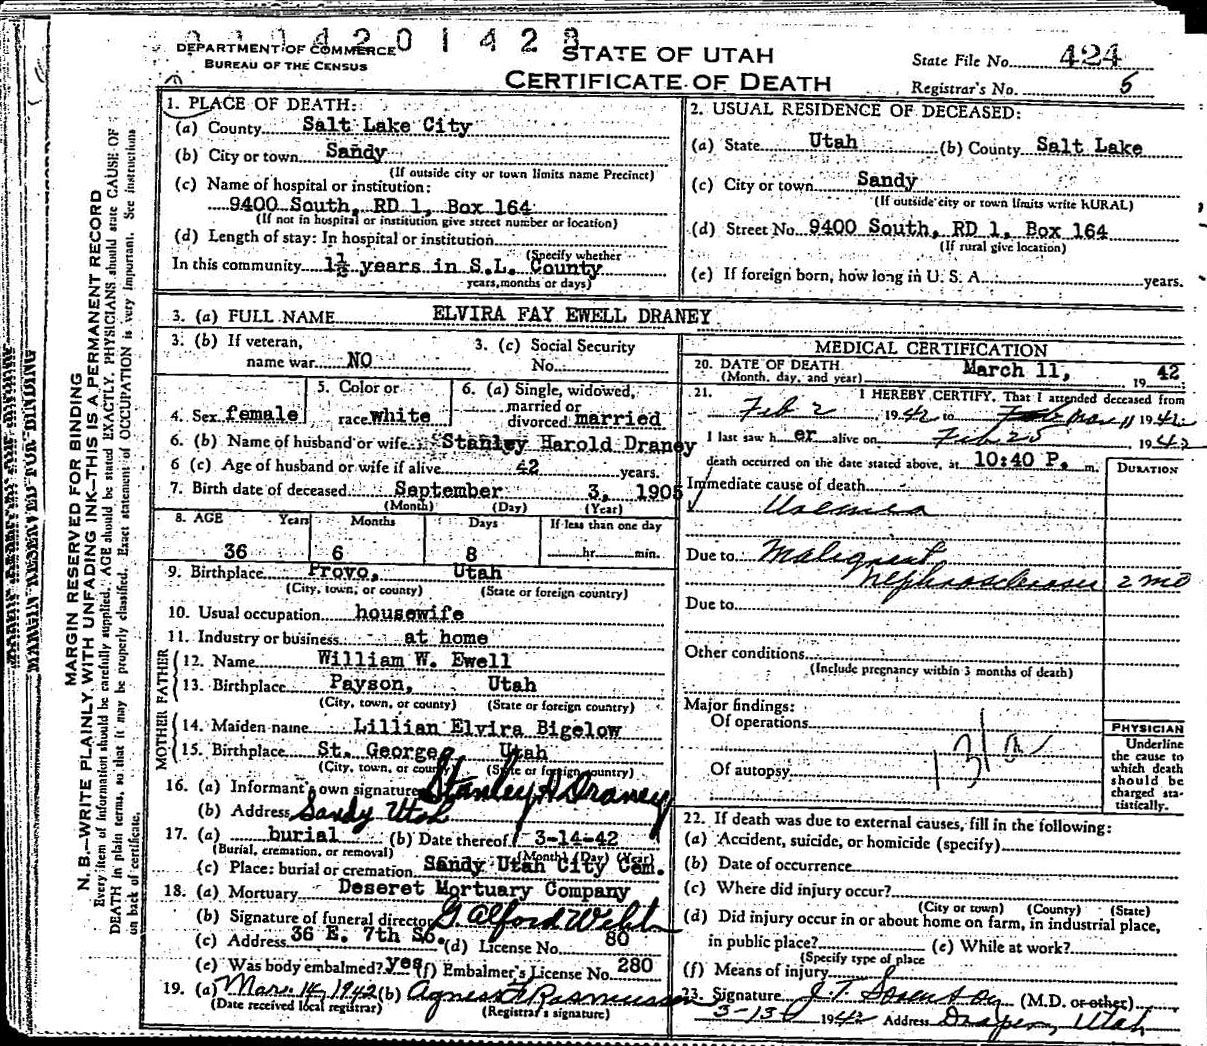 0 0 4 2 0 1 4 2 3
DEPARTMENT OF COMMERCE
BUREAU OF THE CENSUS
STATE OF UTAH
CERTIFICATE OF DEATH
State File No. 424
Registrar's No. 5
MARGIN RESERVED FOR BINDING
N. B.—WRITE PLAINLY WITH UNFADING INK—THIS IS A PERMANENT RECORD
Every item of information should be carefully supplied. AGE should be stated EXACTLY. PHYSICIANS should state CAUSE OF
DEATH in plain terms, so that it may be properly classified. Exact statement of OCCUPATION is very important. See instructions
on back of certificate.
1. PLACE OF DEATH:
(a) County Salt Lake City
(b) City or town Sandy
(If outside city or town limits name Precinct)
(c) Name of hospital or institution:
9400 South, RD 1, Box 164
(If not in hospital or institution give street number or location)
(d) Length of stay: In hospital or institution
(Specify whether
In this community 1½ years in S.L. County
years, months or days)
2. USUAL RESIDENCE OF DECEASED:
(a) State Utah (b) County Salt Lake
(c) City or town Sandy
(If outside city or town limits write RURAL)
(d) Street No. 9400 South, RD 1, Box 164
(If rural give location)
(e) If foreign born, how long in U. S. A. years.
3. (a) FULL NAME ELVIRA FAY EWELL DRANEY
3. (b) If veteran,
name war NO
3. (c) Social Security
No.
4. Sex female
5. Color or
race white
6. (a) Single, widowed,
married or
divorced married
6. (b) Name of husband or wife Stanley Harold Draney
6 (c) Age of husband or wife if alive 42 years.
7. Birth date of deceased September 3, 1905
(Month) (Day) (Year)
8. AGE Years Months Days If less than one day
36 6 8 hr. min.
9. Birthplace Provo, Utah
(City, town, or county) (State or foreign country)
10. Usual occupation housewife
11. Industry or business at home
FATHER
12. Name William W. Ewell
13. Birthplace Payson, Utah
(City, town, or county) (State or foreign country)
MOTHER
14. Maiden name Lillian Elvira Bigelow
15. Birthplace St. George Utah
(City, town, or county) (State or foreign country)
16. (a) Informant's own signature Stanley H Draney
(b) Address Sandy Utah
17. (a) burial (b) Date thereof 3-14-42
(Burial, cremation, or removal) (Month) (Day) (Year)
(c) Place: burial or cremation Sandy Utah City Cem.
18. (a) Mortuary Deseret Mortuary Company
(b) Signature of funeral director G Alford Webb
(c) Address 36 E. 7th So. (d) License No. 80
(e) Was body embalmed? yes (f) Embalmer's License No. 280
19. (a) Mar. 14, 1942 (b) Agnes F Rasmussen
(Date received local registrar) (Registrar's signature)
MEDICAL CERTIFICATION
20. DATE OF DEATH March 11, 19 42
(Month, day, and year)
21. I HEREBY CERTIFY, That I attended deceased from
Feb 2 1942 to Mar 11 1942
I last saw her alive on Feb 25 1942
death occurred on the date stated above, at 10:40 P. m.
DURATION
Immediate cause of death
Uremia
Due to Malignant
nephrosclerosis 2 mo
Due to
Other conditions
(Include pregnancy within 3 months of death)
Major findings:
Of operations
131a
Of autopsy
PHYSICIAN
Underline
the cause to
which death
should be
charged sta-
tistically.
22. If death was due to external causes, fill in the following:
(a) Accident, suicide, or homicide (specify)
(b) Date of occurrence
(c) Where did injury occur?
(City or town) (County) (State)
(d) Did injury occur in or about home on farm, in industrial place,
in public place? (e) While at work?
(Specify type of place
(f) Means of injury
23. Signature J. T. Sorenson (M.D. or other)
3-13 1942 Address Draper, Utah